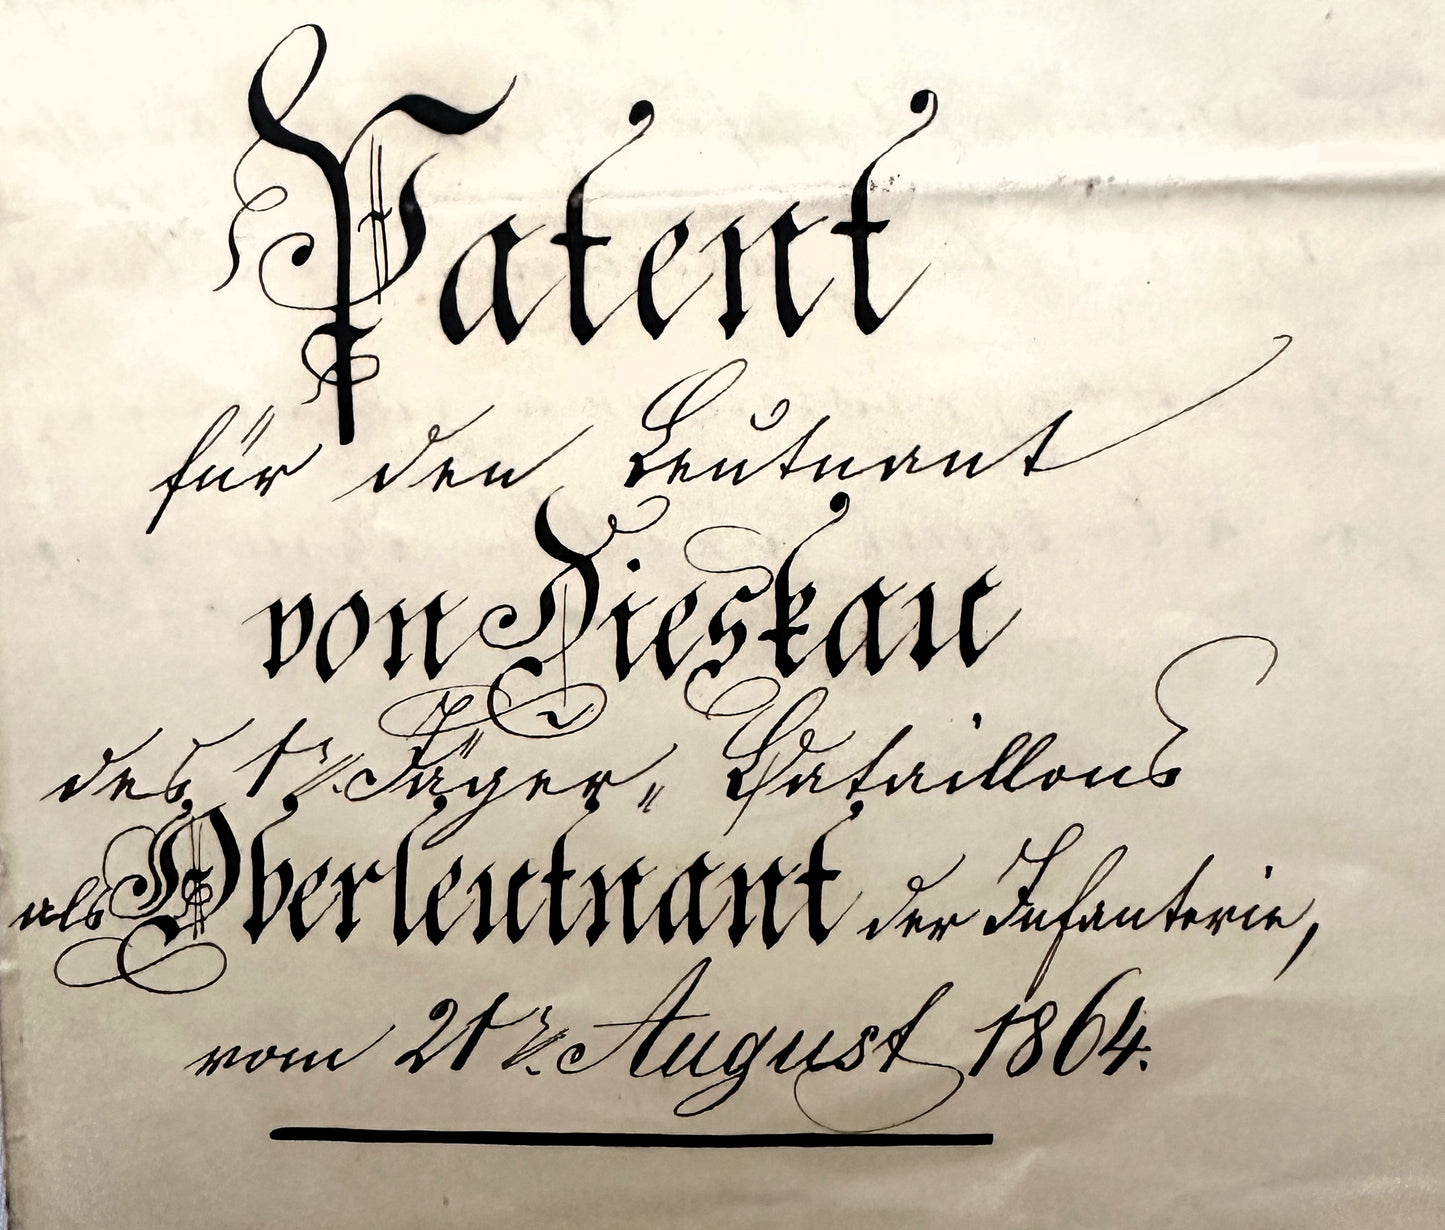 Patent
für den Leutnant
von Dieskau
des 1ten Jäger-Bataillons
als Oberleutnant der Infanterie,
vom 21ten August 1864.